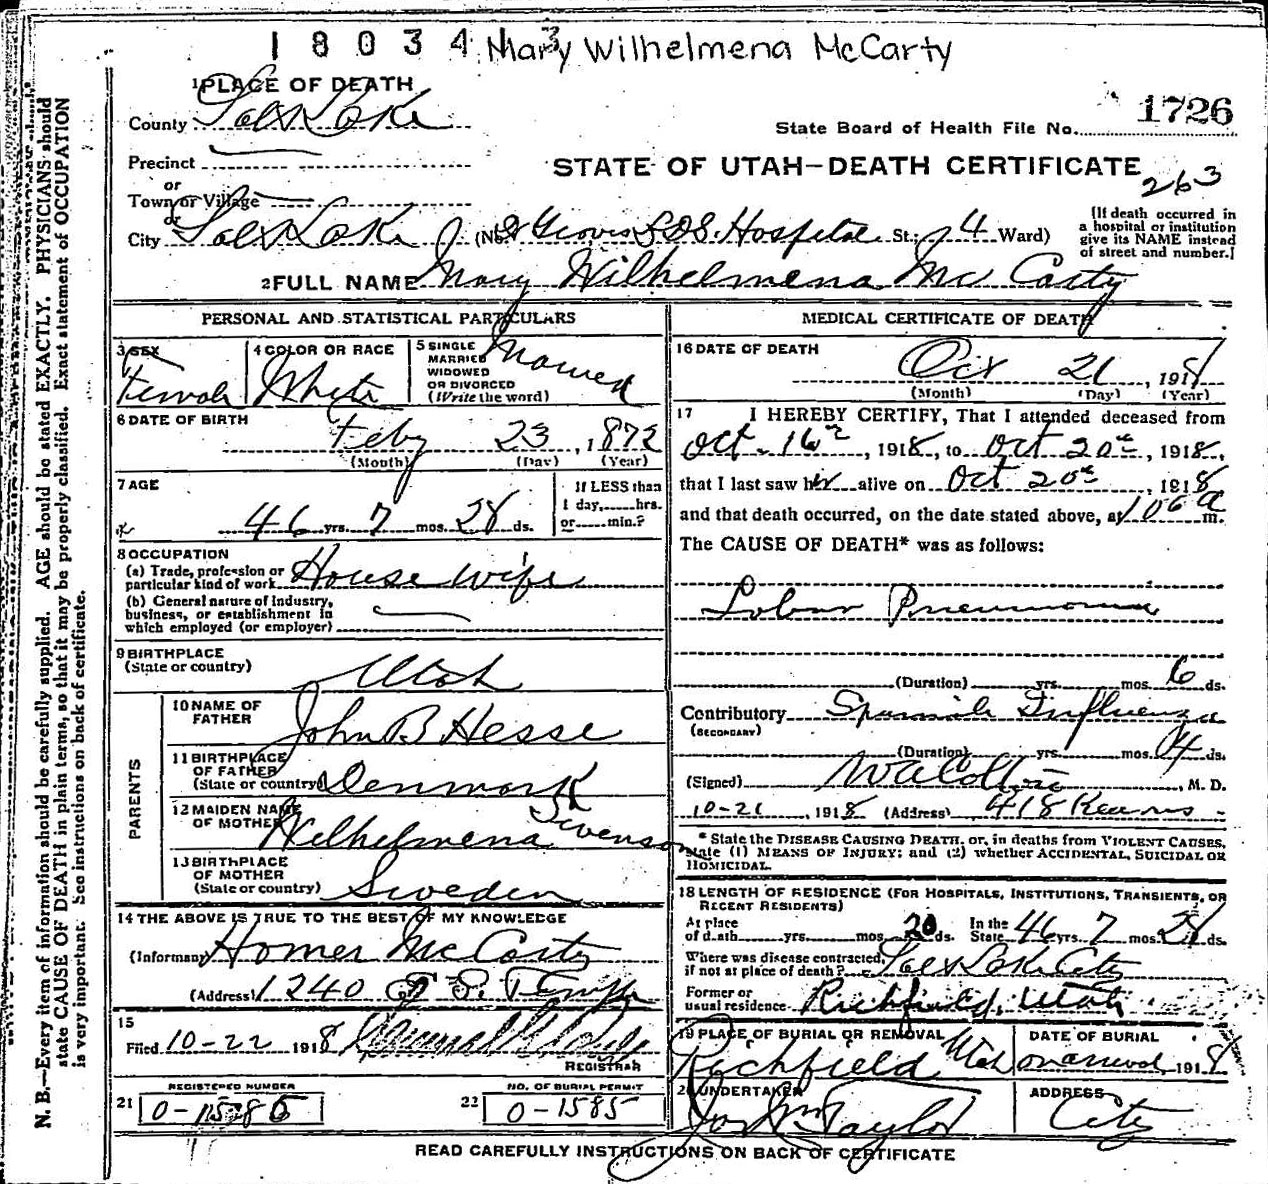 18034 13 Mary Wilhelmena McCarty
1726
State Board of Health File No.
STATE OF UTAH—DEATH CERTIFICATE
263
1 PLACE OF DEATH
County Salt Lake
Precinct
or
Town or Village
or
City Salt Lake (No. Groves L.D.S. Hospital St.; 4 Ward)
[If death occurred in a hospital or institution give its NAME instead of street and number.]
2 FULL NAME Mary Wilhelmena McCarty
PERSONAL AND STATISTICAL PARTICULARS
3 SEX Female
4 COLOR OR RACE White
5 SINGLE MARRIED WIDOWED OR DIVORCED (Write the word) Married
6 DATE OF BIRTH Feby 23, 1872
(Month) (Day) (Year)
7 AGE 46 yrs. 7 mos. 28 ds.
If LESS than 1 day, hrs. or min.?
8 OCCUPATION
(a) Trade, profession or particular kind of work House wife
(b) General nature of industry, business, or establishment in which employed (or employer)
9 BIRTHPLACE (State or country) Utah
PARENTS
10 NAME OF FATHER John B Hesse
11 BIRTHPLACE OF FATHER (State or country) Denmark
12 MAIDEN NAME OF MOTHER Wilhelmena Swenson
13 BIRTHPLACE OF MOTHER (State or country) Sweden
14 THE ABOVE IS TRUE TO THE BEST OF MY KNOWLEDGE
(Informant) Homer McCarty
(Address) 1240 E S. Temple
15
Filed 10-22 1918
REGISTRAR
REGISTERED NUMBER
21
NO. OF BURIAL PERMIT
22 0-1585
MEDICAL CERTIFICATE OF DEATH
16 DATE OF DEATH Oct 21, 1918
(Month) (Day) (Year)
17 I HEREBY CERTIFY, That I attended deceased from
Oct. 16, 1918, to Oct 20, 1918,
that I last saw her alive on Oct 20 1918
and that death occurred, on the date stated above, at 106 a m.
The CAUSE OF DEATH* was as follows:
Lobar Pneumonia
(Duration) yrs. mos. 6 ds.
Contributory Spanish Influenza
(SECONDARY)
(Duration) yrs. mos. ds.
(Signed) M. D.
10-21 1918 (Address) 418 Kearns
* State the DISEASE CAUSING DEATH, or, in deaths from VIOLENT CAUSES, state (1) MEANS OF INJURY; and (2) whether ACCIDENTAL, SUICIDAL OR HOMICIDAL.
18 LENGTH OF RESIDENCE (FOR HOSPITALS, INSTITUTIONS, TRANSIENTS, OR RECENT RESIDENTS)
At place of death yrs. mos. 20 ds. In the State 46 yrs. 7 mos. 28 ds.
Where was disease contracted, if not at place of death? Salt Lake City
Former or usual residence Richfield, Utah
19 PLACE OF BURIAL OR REMOVAL Richfield Utah
DATE OF BURIAL 1918
20 UNDERTAKER Jos Wm Taylor
ADDRESS City
READ CAREFULLY INSTRUCTIONS ON BACK OF CERTIFICATE
N. B.—Every item of information should be carefully supplied. AGE should be stated EXACTLY. PHYSICIANS should
state CAUSE OF DEATH in plain terms, so that it may be properly classified. Exact statement of OCCUPATION
is very important. See instructions on back of certificate.